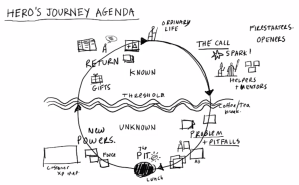 HERO'S JOURNEY AGENDA
ORDINARY
LIFE
FIRESTARTERS
OPENERS
THE CALL
SPARK!
A
RETURN
KNOWN
HELPERS
+ MENTORS
GIFTS
THRESHOLD
coffee/tea
break
UNKNOWN
NEW
POWERS.
PROBLEM
+ PITFALLS
The
PIT
Lunch